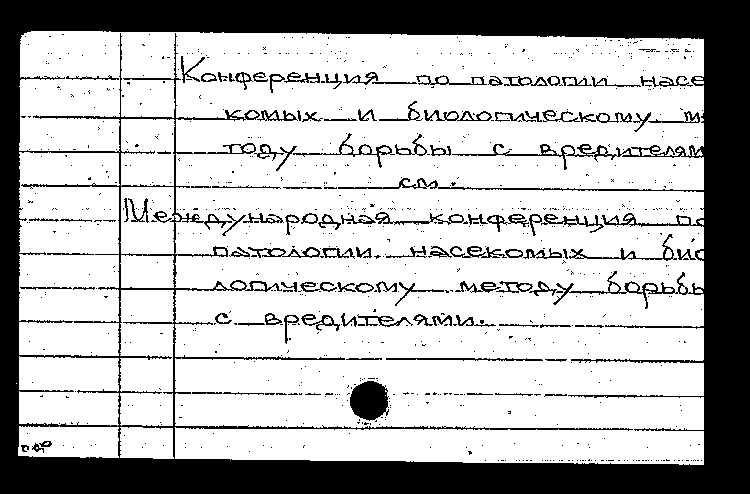 Конференция по патологии насе
комых и биологическому м
тоду борьбы с вредителям
см.
Международная конференция по
патологии насекомых и био
логическому методу борьбы
с вредителями.